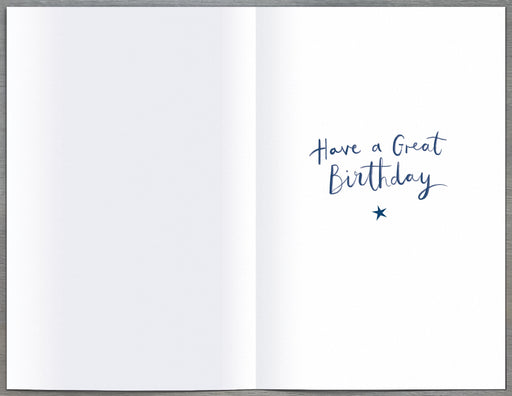 Have a Great
Birthday